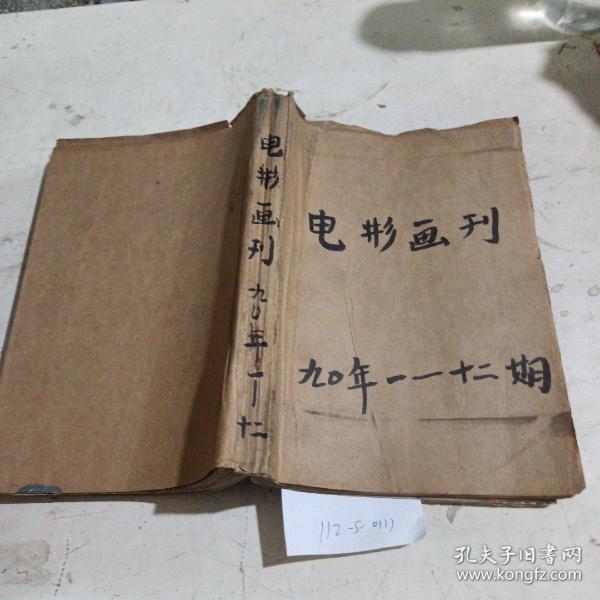 电影画刊
九〇年一—十二
电影画刊
九〇年一—十二期
112-5-0111
孔夫子旧书网
www.kongfz.com